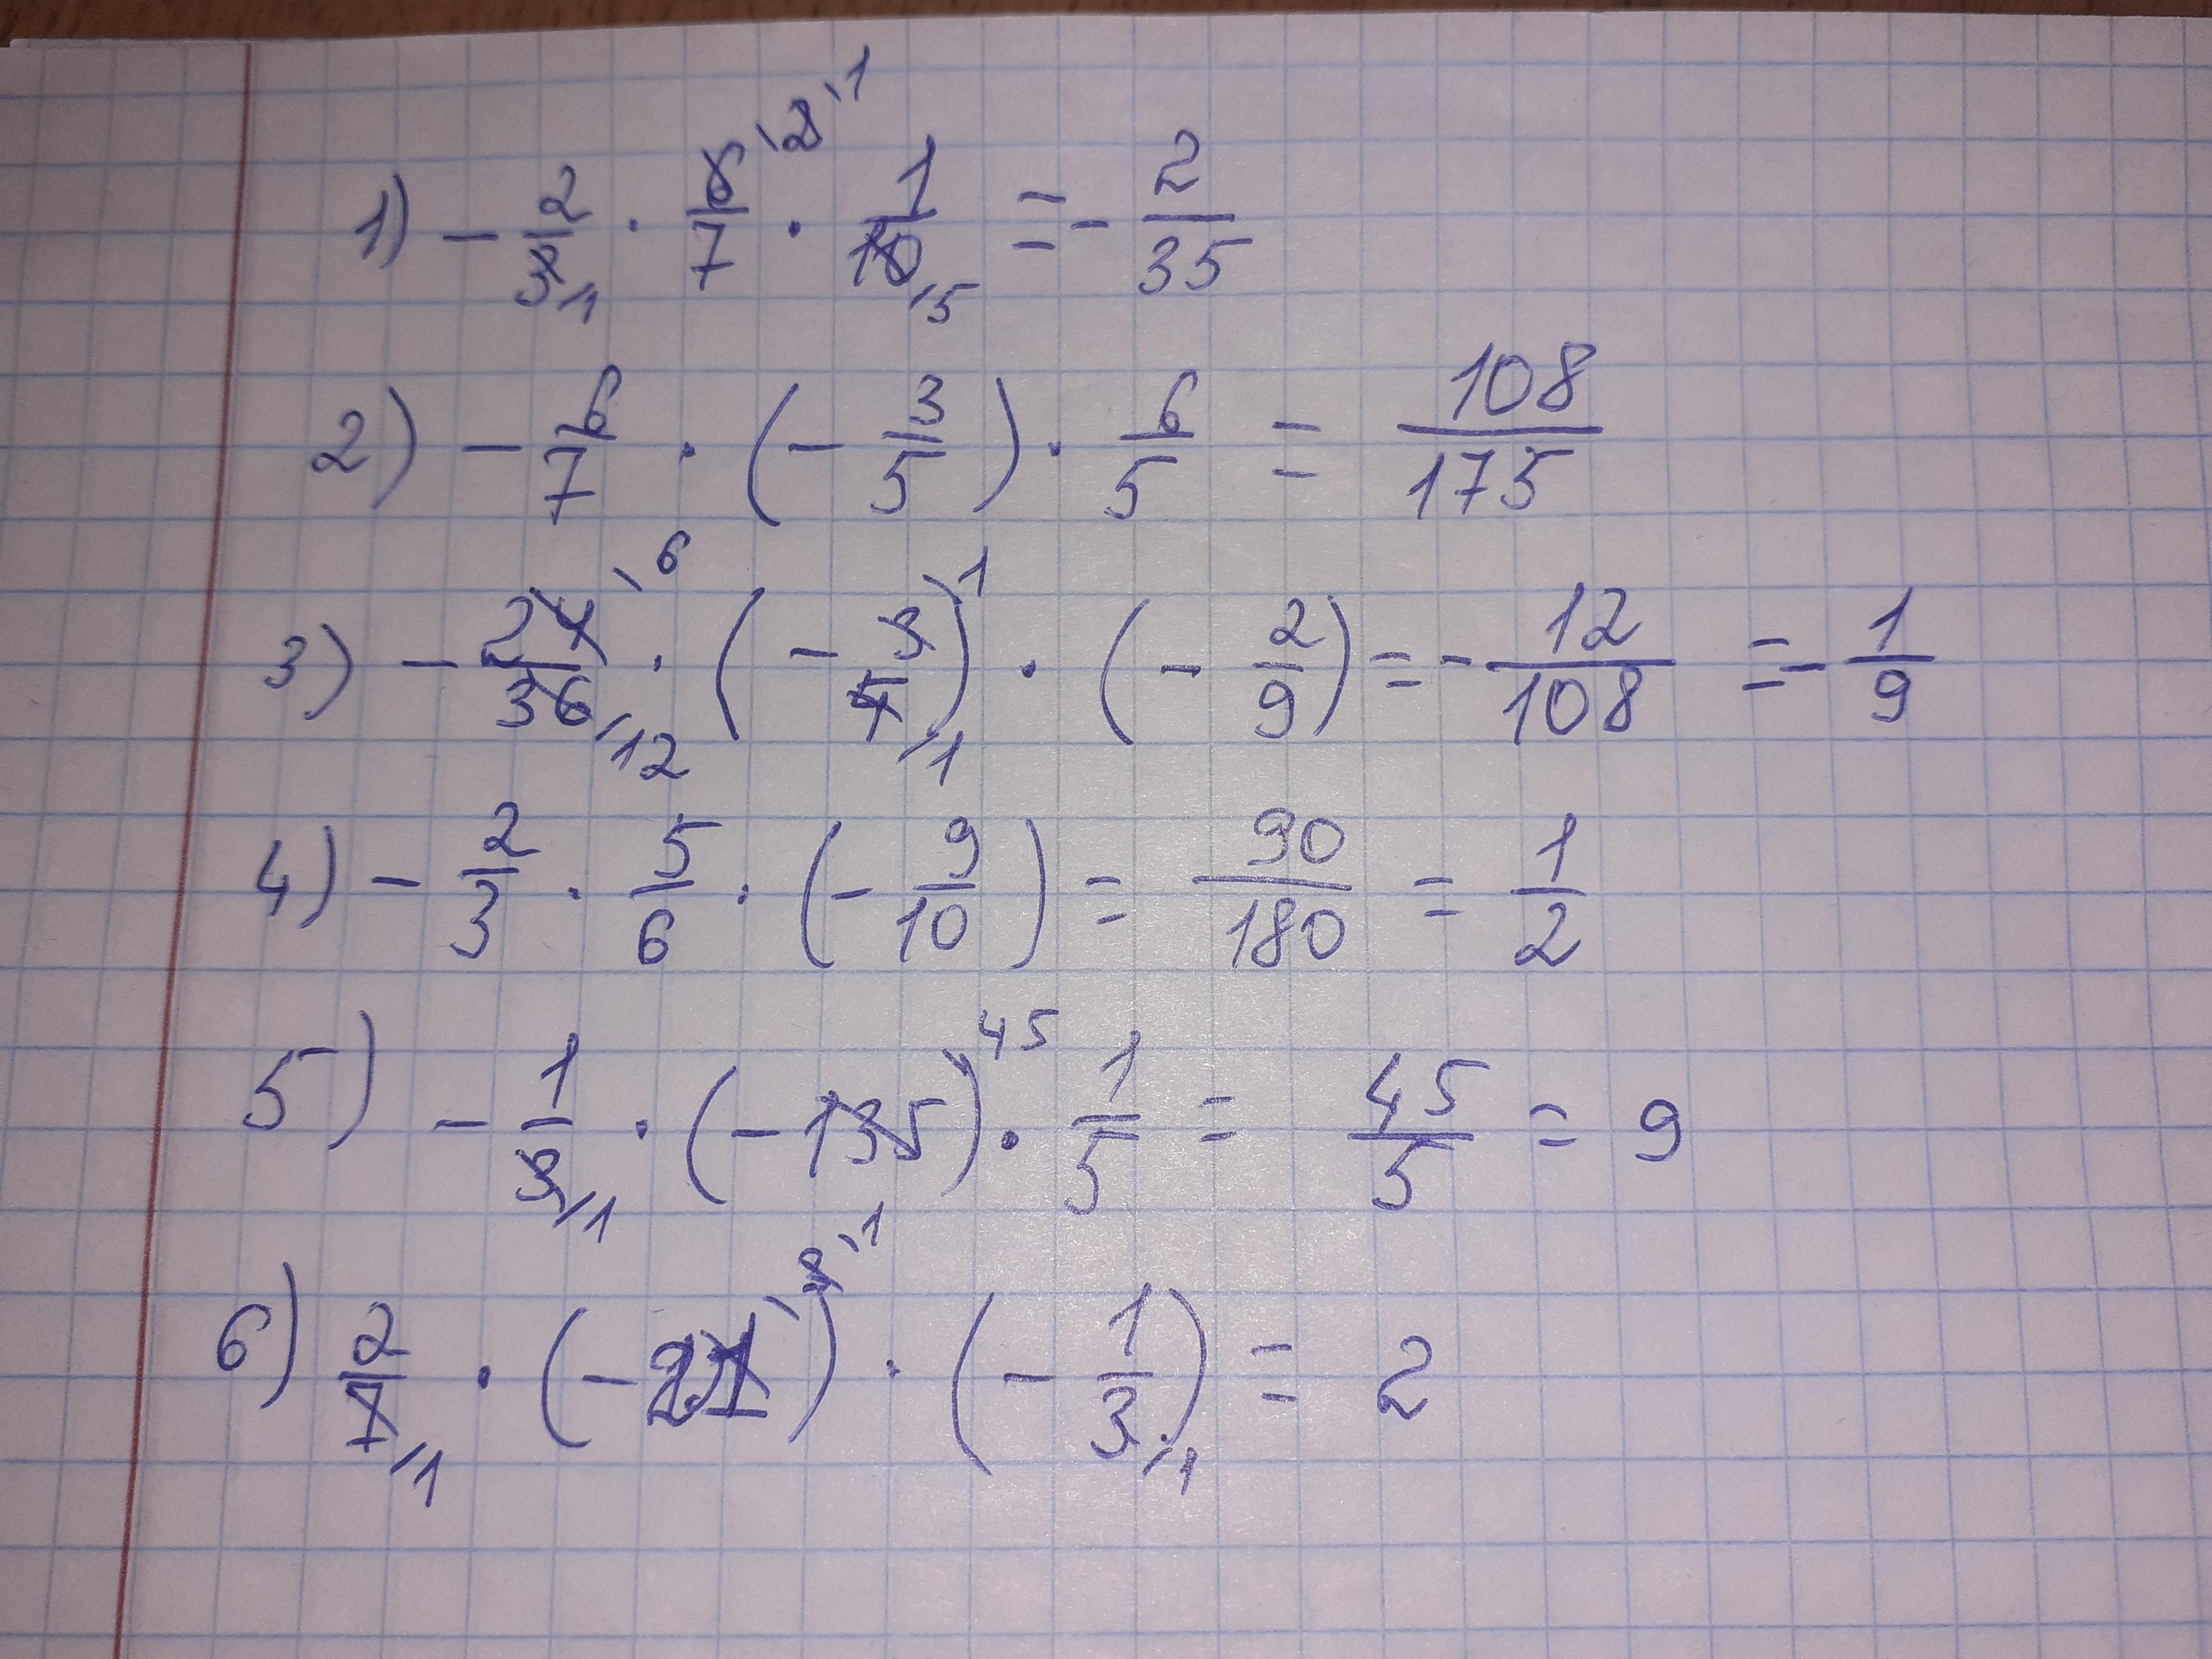 1) - 2/3/1 · 6/7 \2\1 · 1/10/5 = - 2/35
2) - 6/7 · (- 3/5) · 6/5 = 108/175
3) - 24\6/36/12 · (- 3\1/4/1) · (- 2/9) = - 12/108 = - 1/9
4) - 2/3 · 5/6 · (- 9/10) = 90/180 = 1/2
5) - 1/3/1 · (-135)\45 · 1/5 = 45/5 = 9
6) 2/7/1 · (-21)\3\1 · (- 1/3/1) = 2